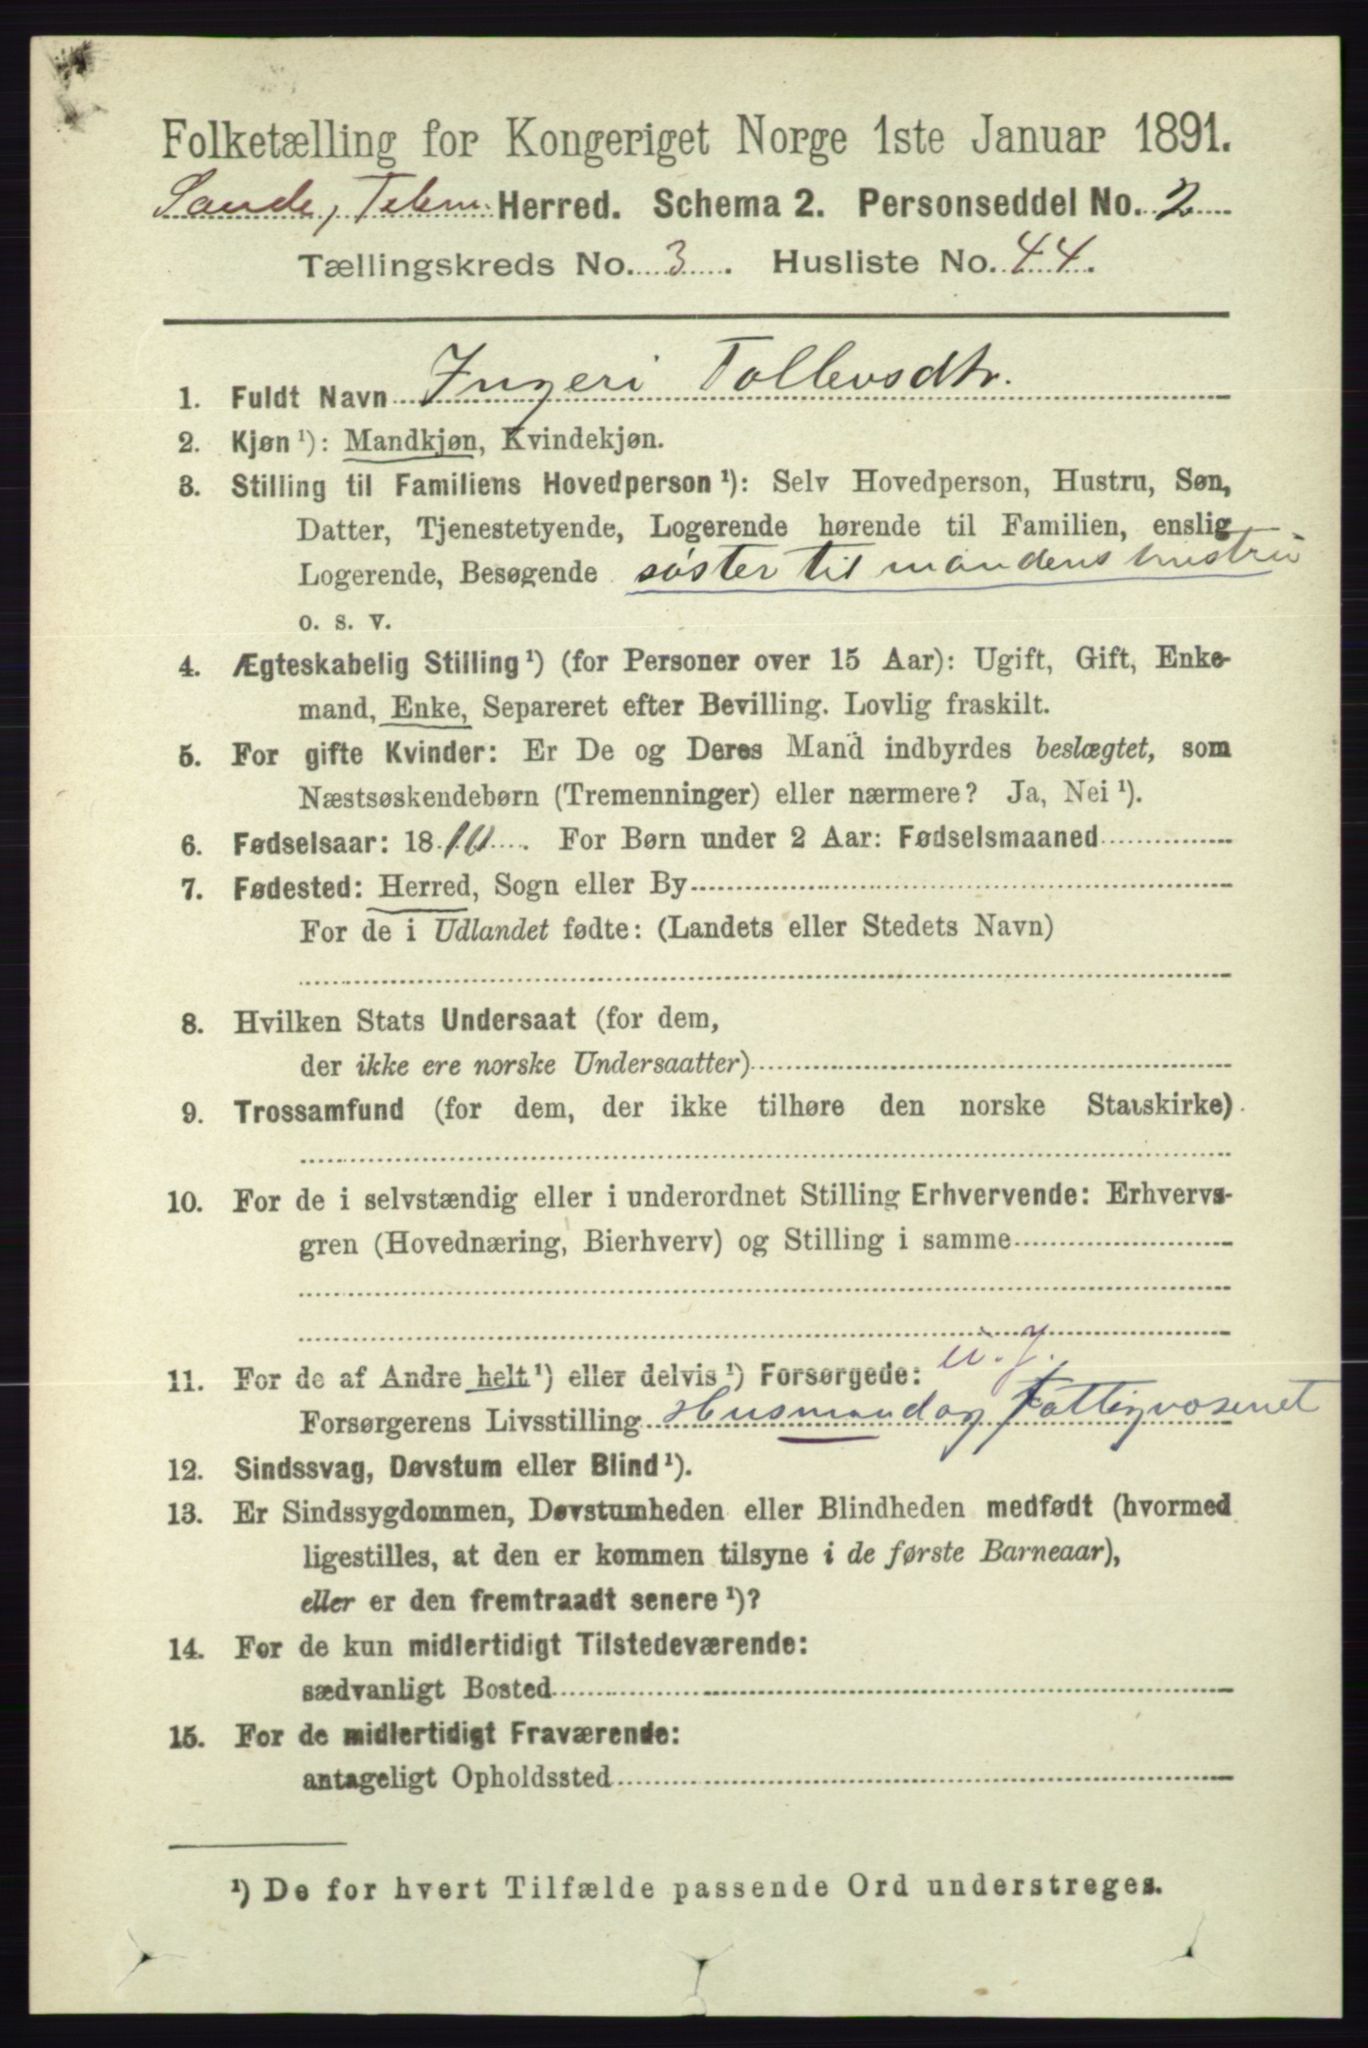 Folketælling for Kongeriget Norge 1ste Januar 1891.
Saude, Telem. Herred. Schema 2. Personseddel No. 2
Tællingskreds No. 3. Husliste No. 44.
1. Fuldt Navn Ingeri Tollevsdtr.
2. Kjøn ¹): Mandkjøn, Kvindekjøn.
3. Stilling til Familiens Hovedperson ¹): Selv Hovedperson, Hustru, Søn,
Datter, Tjenestetyende, Logerende hørende til Familien, enslig
Logerende, Besøgende søster til mandens hustru
o. s. v.
4. Ægteskabelig Stilling ¹) (for Personer over 15 Aar): Ugift, Gift, Enke-
mand, Enke, Separeret efter Bevilling. Lovlig fraskilt.
5. For gifte Kvinder: Er De og Deres Mand indbyrdes beslægtet, som
Næstsøskendebørn (Tremenninger) eller nærmere? Ja, Nei ¹).
6. Fødselsaar: 1810. For Børn under 2 Aar: Fødselsmaaned
7. Fødested: Herred, Sogn eller By
For de i Udlandet fødte: (Landets eller Stedets Navn)
8. Hvilken Stats Undersaat (for dem,
der ikke ere norske Undersaatter)
9. Trossamfund (for dem, der ikke tilhøre den norske Statskirke)
10. For de i selvstændig eller i underordnet Stilling Erhvervende: Erhvervs-
gren (Hovednæring, Bierhverv) og Stilling i samme
u. J.
11. For de af Andre helt ¹) eller delvis ¹) Forsørgede:
Forsørgerens Livsstilling Husmand og Fattigvæsenet
12. Sindssvag, Døvstum eller Blind ¹).
13. Er Sindssygdommen, Døvstumheden eller Blindheden medfødt (hvormed
ligestilles, at den er kommen tilsyne i de første Barneaar),
eller er den fremtraadt senere ¹)?
14. For de kun midlertidigt Tilstedeværende:
sædvanligt Bosted
15. For de midlertidigt Fraværende:
antageligt Opholdssted
¹) De for hvert Tilfælde passende Ord understreges.